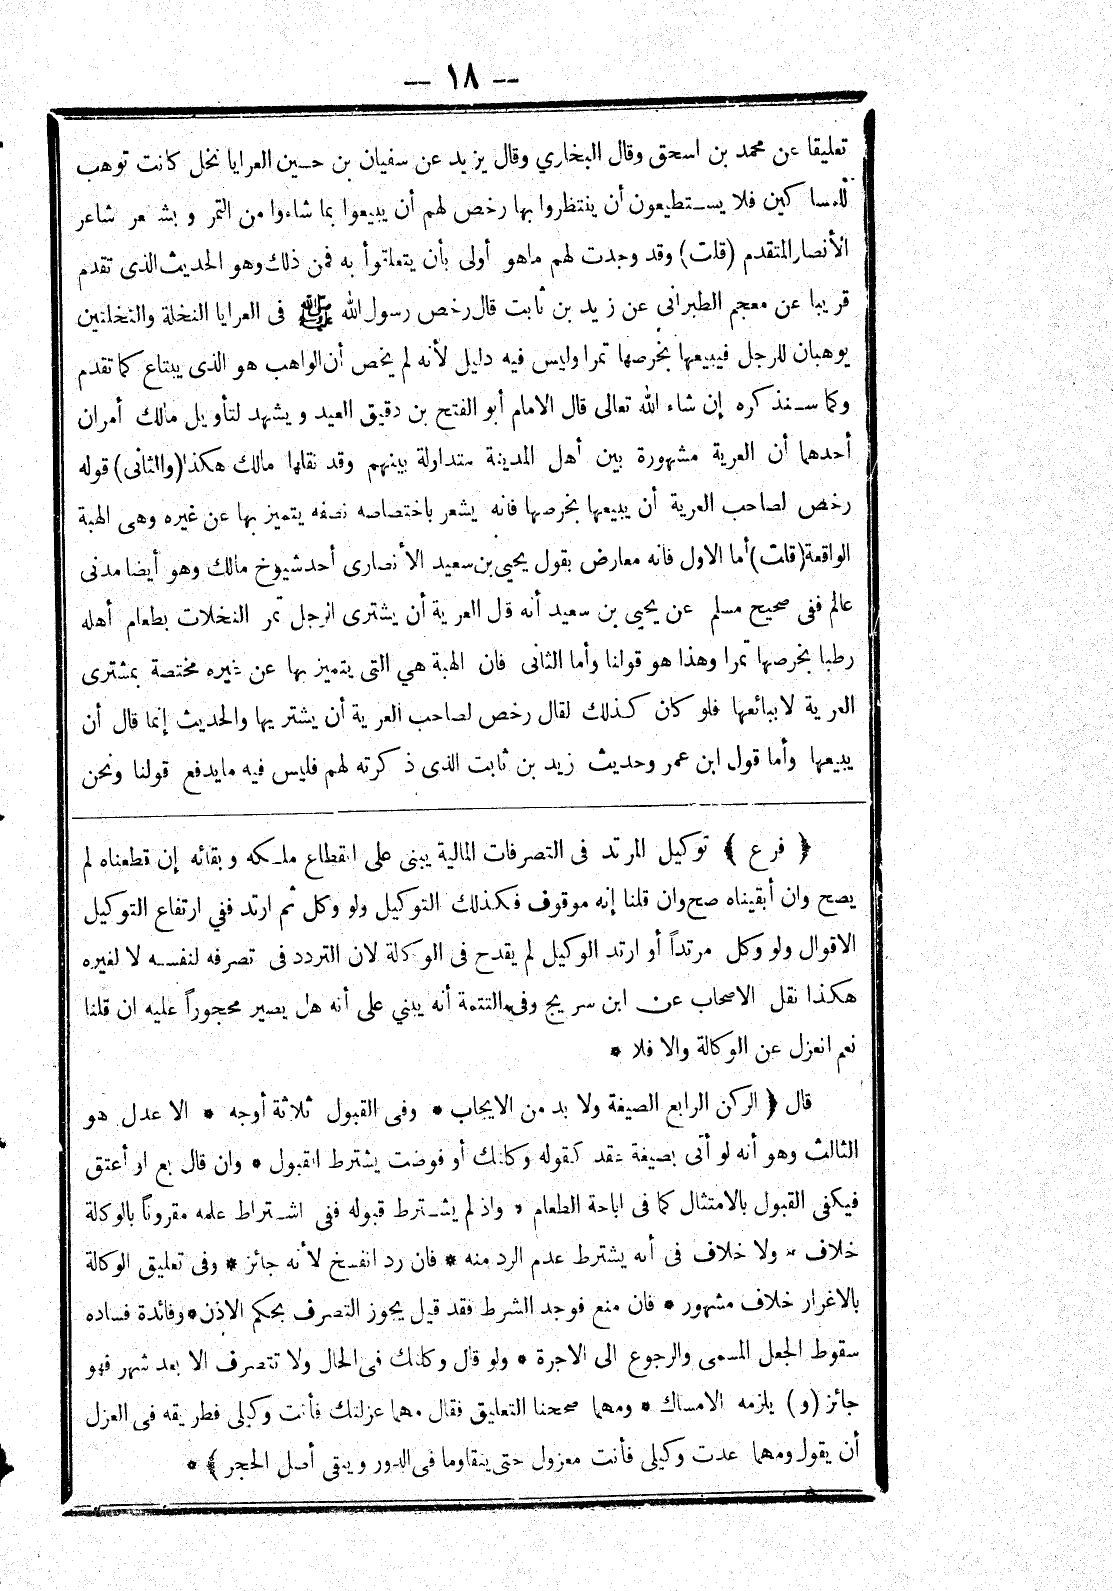 — ١٨ —
تعليقا عن محمد بن اسحق وقال البخاري وقال يزيد عن سفيان بن حسين العرايا نخل كانت توهب
للمساكين فلا يستطيعون أن ينتظروا بها رخص لهم أن يبيعوا بما شاءوا من التمر وبشعر شاعر
الأنصار المتقدم (قلت) وقد وجدت لهم ماهو أولى بأن يتعلقوا به فمن ذلك وهو الحديث الذى تقدم
قريبا عن معجم الطبراني عن زيد بن ثابت قال رخص رسول الله ﷺ فى العرايا النخلة والنخلتين
يوهبان للرجل فيبيعها بخرصها تمرا وليس فيه دليل لأنه لم يخص أن الواهب هو الذى يبتاع كما تقدم
وكما سنذكره إن شاء الله تعالى قال الامام أبو الفتح بن دقيق العيد ويشهد لتأويل مالك أمران
أحدهما أن العرية مشهورة بين أهل المدينة متداولة بينهم وقد نقلها مالك هكذا (والثانى) قوله
رخص لصاحب العرية أن يبيعها بخرصها فانه يشعر باختصاصه نصفه يتميز بها عن غيره وهى الهبة
الواقعة (قلت) أما الاول فانه معارض بقول يحيى بن سعيد الأنصارى أحد شيوخ مالك وهو أيضا مدنى
عالم ففى صحيح مسلم عن يحيى بن سعيد أنه قال العرية أن يشترى الرجل تمر النخلات بطعام أهله
رطبا بخرصها تمرا وهذا هو قولنا وأما الثانى فان الهبة هي التى يتميز بها عن غيره مختصة بمشترى
العرية لا ببائعها فلو كان كذلك لقال رخص لصاحب العرية أن يشتريها والحديث إنما قال أن
يبيعها وأما قول ابن عمر وحديث زيد بن ثابت الذى ذكرته لهم فليس فيه ما يدفع قولنا ونحن
﴿ فرع ﴾ توكيل المرتد فى التصرفات المالية يبنى على انقطاع ملكه وبقائه إن قطعناه لم
يصح وان أبقيناه صح وان قلنا إنه موقوف فكذلك التوكيل ولو وكل ثم ارتد ففي ارتفاع التوكيل
الاقوال ولو وكل مرتداً أو ارتد الوكيل لم يقدح فى الوكالة لان التردد فى تصرفه لنفسه لا لغيره
هكذا نقل الاصحاب عن ابن سريج وفى التتمة أنه يبني على أنه هل يصير محجوراً عليه ان قلنا
نعم انعزل عن الوكالة والا فلا *
قال ﴿ الركن الرابع الصيغة ولا بد من الايجاب * وفى القبول ثلاثة أوجه * الاعدل هو
الثالث وهو أنه لو أتى بصيغة عقد كقوله وكلتك أو فوضت يشترط القبول * وان قال بع او أعتق
فيكفى القبول بالامتثال كما فى اباحة الطعام * واذ لم يشترط قبوله ففى اشتراط علمه مقروناً بالوكالة
خلاف * ولا خلاف فى أنه يشترط عدم الرد منه * فان رد انفسخ لأنه جائز * وفى تعليق الوكالة
بالاغرار خلاف مشهور * فان منع فوجد الشرط فقد قيل يجوز التصرف بحكم الاذن * وفائدة فساده
سقوط الجعل المسمى والرجوع الى الاجرة * ولو قال وكلتك فى الحال ولا تتصرف الا بعد شهر فهو
جائز (و) يلزمه الامساك * ومهما صححنا التعليق فقال مهما عزلتك فأنت وكيلى فطريقه فى العزل
أن يقول ومهما عدت وكيلى فأنت معزول حتى يتقاوما فى الدور ويبقى أصل الحجر ﴾ *